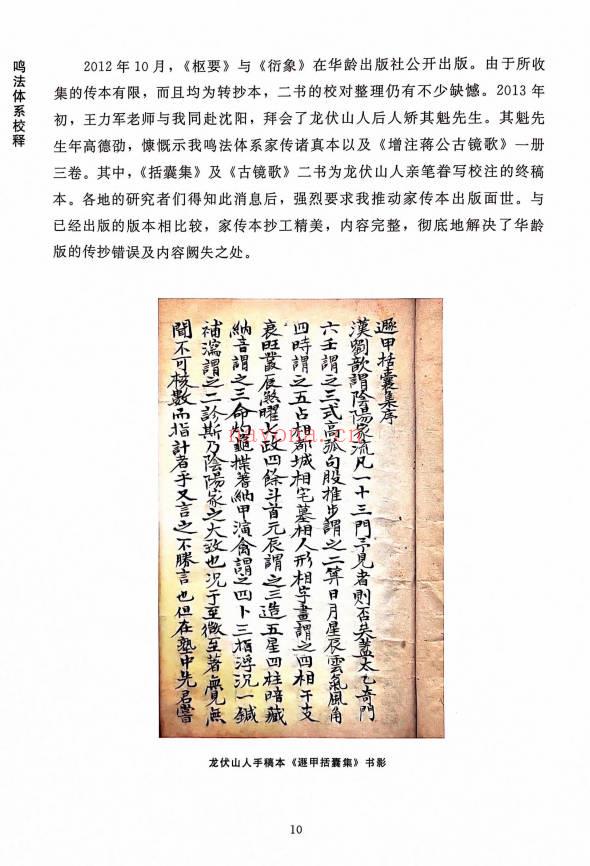 鸣法体系校释
2012年10月，《枢要》与《衍象》在华龄出版社公开出版。由于所收
集的传本有限，而且均为转抄本，二书的校对整理仍有不少缺憾。2013年
初，王力军老师与我同赴沈阳，拜会了龙伏山人后人矫其魁先生。其魁先
生年高德劭，慷慨示我鸣法体系家传诸真本以及《增注蒋公古镜歌》一册
三卷。其中，《括囊集》及《古镜歌》二书为龙伏山人亲笔眷写校注的终稿
本。各地的研究者们得知此消息后，强烈要求我推动家传本出版面世。与
已经出版的版本相比较，家传本抄工精美，内容完整，彻底地解决了华龄
版的传抄错误及内容阙失之处。
遯甲括囊集序
漢劉歆謂陰陽家流凡一十三門予見者則否矣蓋太乙奇門
六壬謂之三式高弧句股推步謂之二算日月星辰雲氣風角
四時謂之五占相都城相宅墓相人形相字畫謂之四相干支
衰旺叢辰煞曜七政四餘斗首元辰謂之三造五星四柱暗藏
納音謂之三命灼龜揲蓍納甲演禽謂之四卜三指浮沉一鍼
補瀉謂之二診斯乃陰陽家之大政也况于至微至著無見無
聞不可核數而指計者乎又言之不勝言也但在塾中先君嘗
nayona.cn
龙伏山人手稿本《遯甲括囊集》书影
10